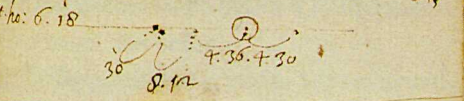 ho: 6. 18
30 8. 12 4. 36. 4. 30